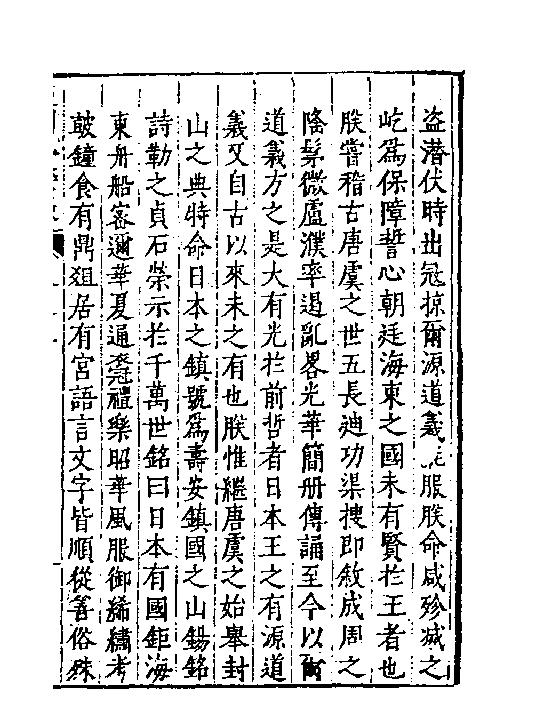 盗潛伏時出冦掠爾源道義能服朕命咸殄滅之
屹爲保障誓心朝廷海東之國未有賢於王者也
朕嘗稽古唐虞之世五長迪功渠搜即敘成周之
隆髳微盧濮率遏亂畧光華簡册傳誦至今以爾
道義方之是大有光於前哲者日本王之有源道
義又自古以來未之有也朕惟繼唐虞之始舉封
山之典特命日本之鎮號爲壽安鎮國之山錫銘
詩勒之貞石榮示於千萬世銘曰日本有國鉅海
東舟船宻邇華夏通衣冠禮樂昭華風服御絺繡考
皷鐘食有鼎俎居有宫語言文字皆順從善俗殊